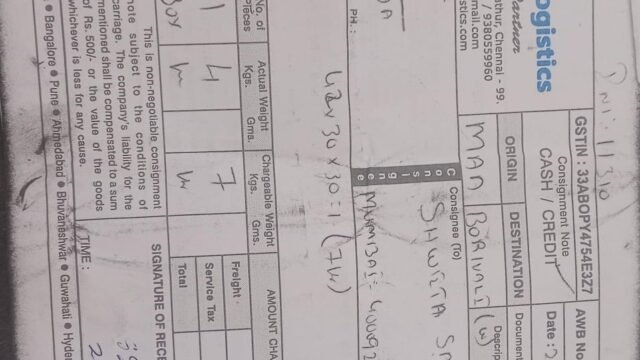 Partner
ogistics
asthur, Chennai - 99.
/ 9380559960
mail.com
stics.com
GSTIN : 33ABOPY4754E3Z7
Consignment Note
CASH / CREDIT
AWB No
Date :
ORIGIN
DESTINATION
Document
MAA
BORIVALI (W)
Descrip
PH :
Consignee
Consignee (To)
SHWETA
MUMBAI - 4009
42x30x30=1 (7k)
No. of
Pieces
Actual Weight
Kgs.
Gms.
Chargeable Weight
Kgs.
Gms.
AMOUNT CHA
1
4
7
Freight
Service Tax
Total
This is non-negotiable consignment
note subject to the conditions of
carriage. The company's liability for the
mentioned shall be compensated to a sum
of Rs. 500/- or the value of the goods
whichever is less for any cause.
SIGNATURE OF RECE
TIME :
Bangalore ● Pune ● Ahmedabad ● Bhuvaneshwar ● Guwahati ● Hyde